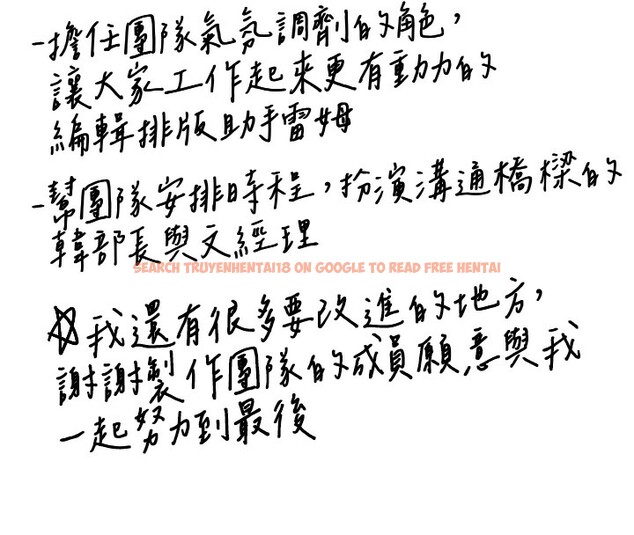 -擔任團隊氣氛調劑的角色，
讓大家工作起來更有動力的
編輯排版助手雷姆
-幫團隊安排時程，扮演溝通橋樑的
韓部長與文經理
SEARCH TRUYENHENTAI18 ON GOOGLE TO READ FREE HENTAI
☆我還有很多要改進的地方，
謝謝製作團隊的成員願意與我
一起努力到最後